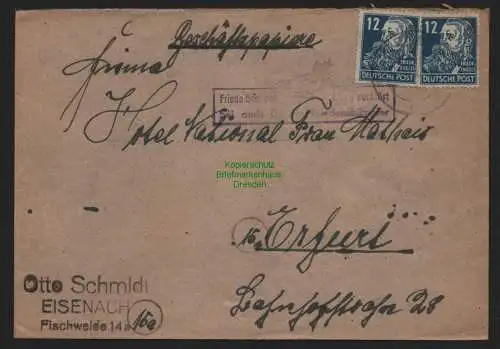 Geschäftspapiere
12 12
FRIEDR. ENGELS
DEUTSCHE POST DEUTSCHE POST
Firma
Hotel National Frau Matheis
Kopierschutz
Briefmarkenhaus
Dresden
(15a) Erfurt
Bahnhofstraße 28
Otto Schmidt
EISENACH
Fischweide 14a
16a